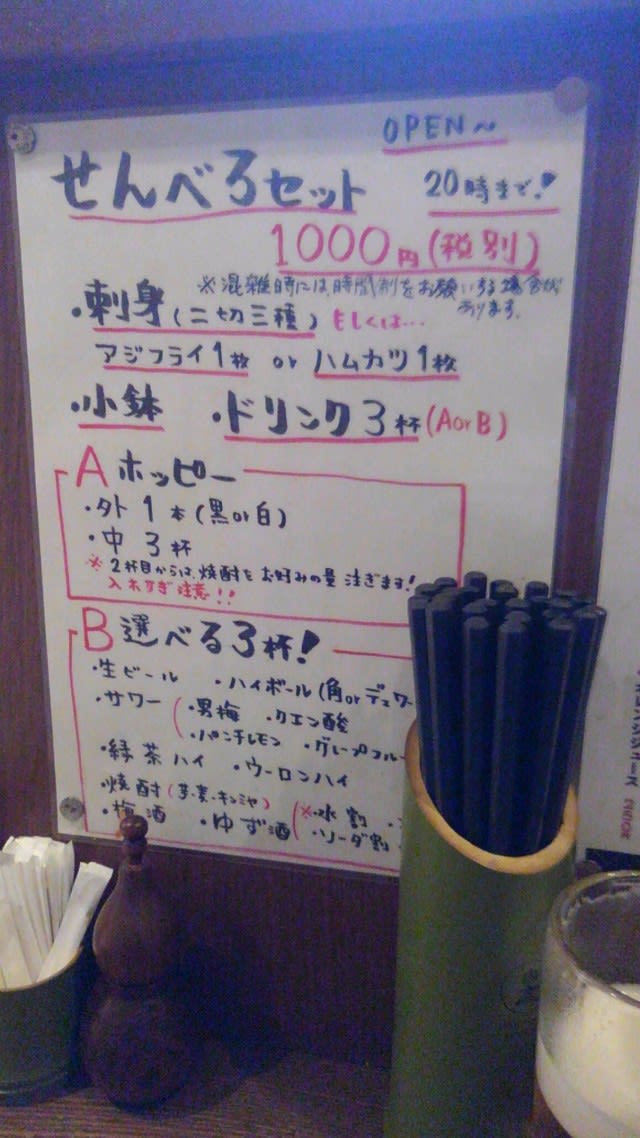 OPEN～
せんべろセット
20時まで！
1000円(税別)
※混雑時には、時間制をお願いする場合が
あります。
・刺身(二切三種) もしくは…
アジフライ1枚 or ハムカツ1枚
・小鉢 ・ドリンク3杯(AorB)
Aホッピー
・外1本(黒or白)
・中3杯
※2杯目からは、焼酎をお好みの量注ぎます！
入れすぎ注意!!
B選べる3杯！
・生ビール ・ハイボール(角orデュワー
・サワー(・男梅 ・クエン酸
・パンチレモン ・グレープフルー
・緑茶ハイ ・ウーロンハイ
・焼酎(芋・麦・キンミヤ)
・梅酒 ・ゆず酒(※・水割
・ソーダ割